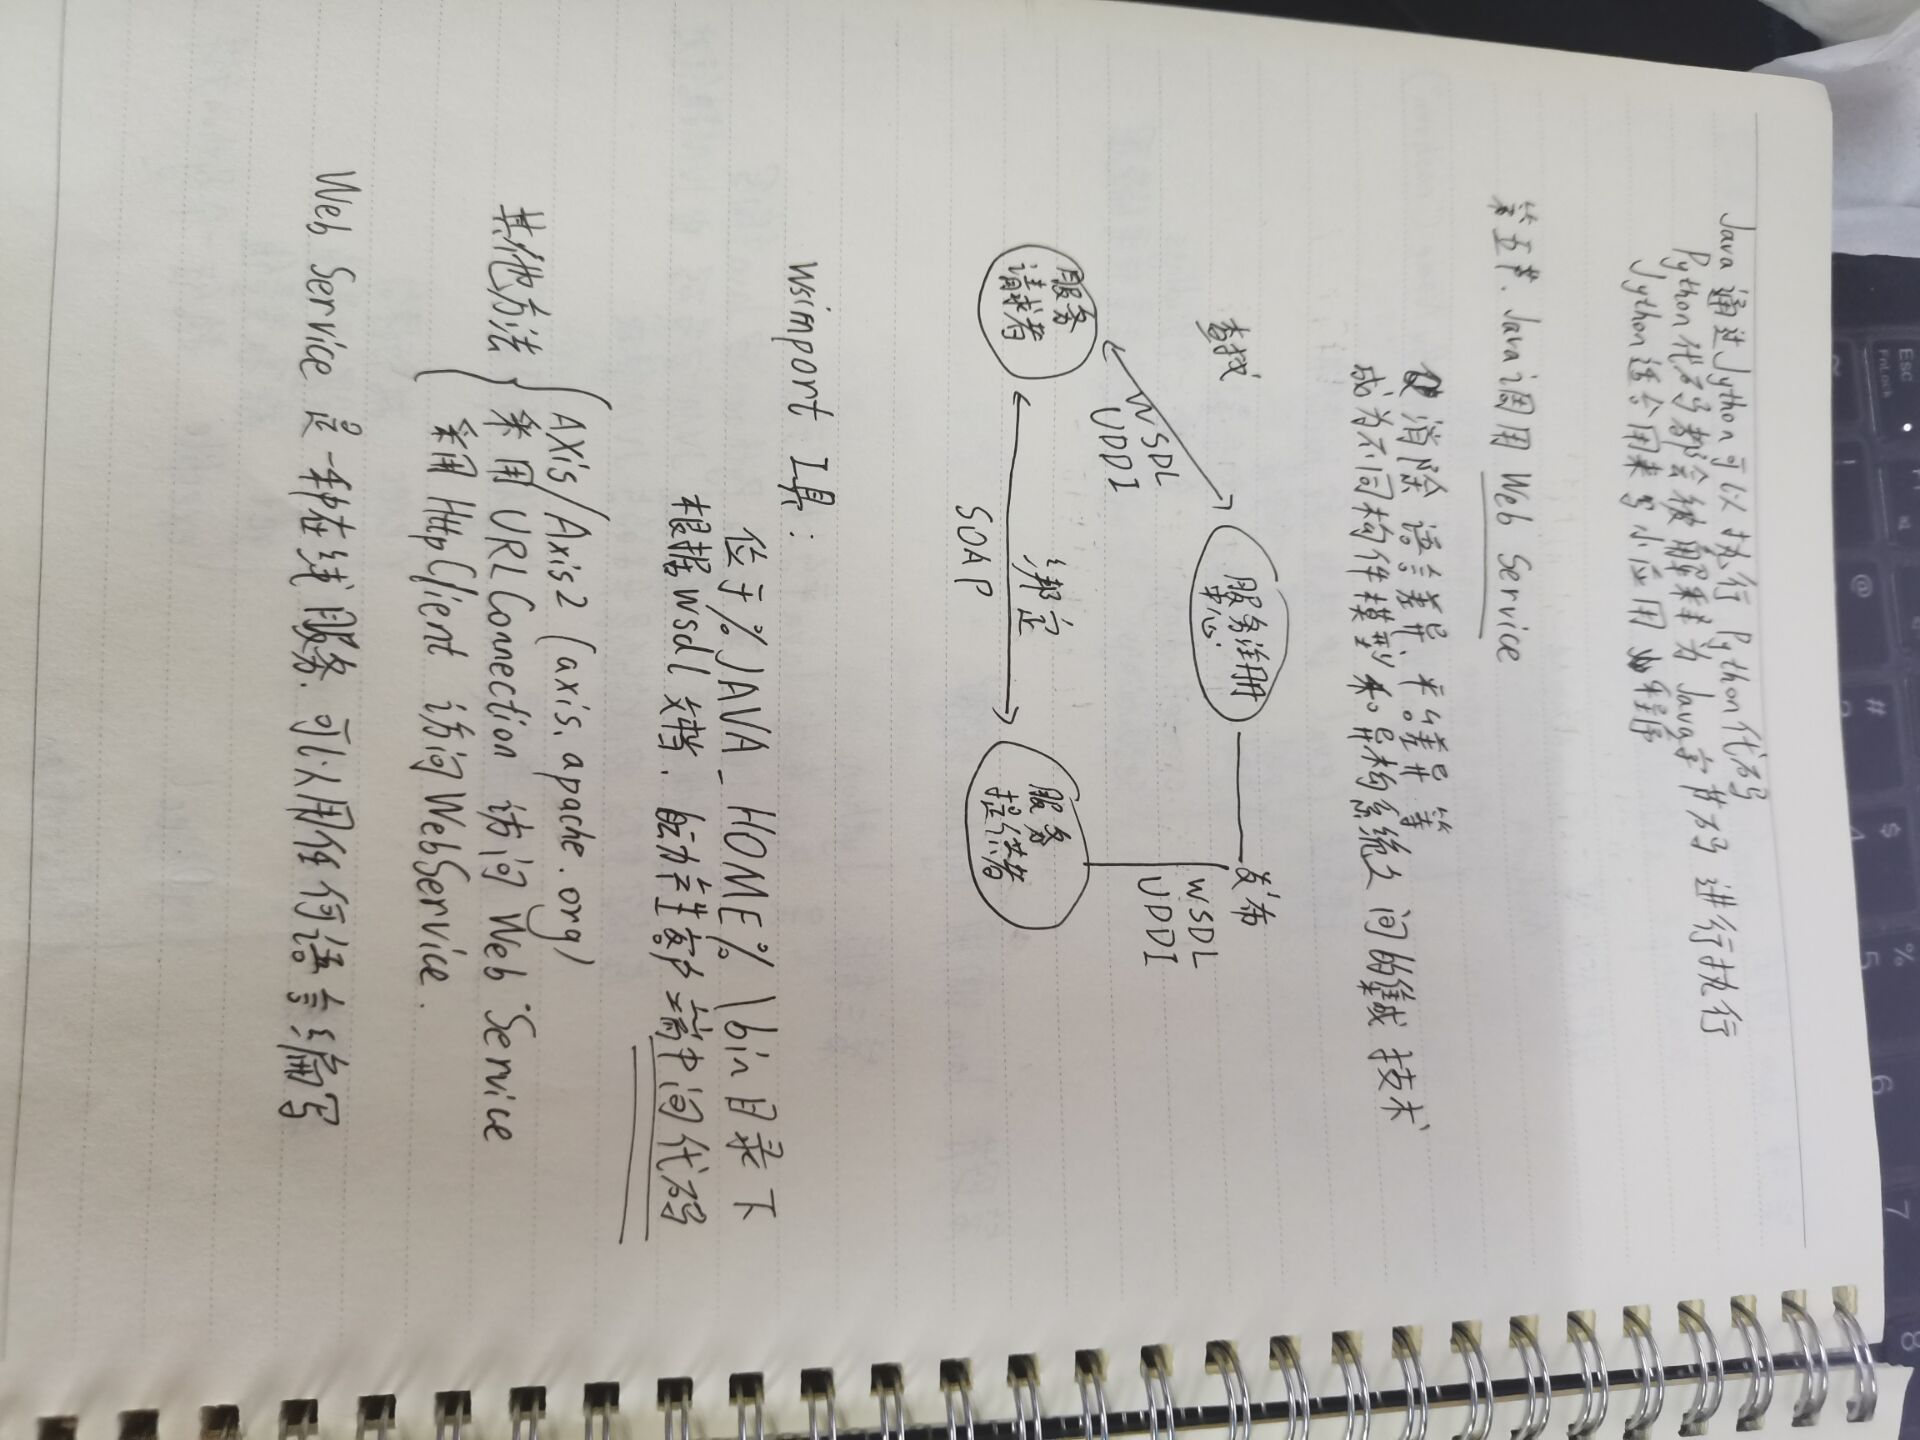 Java通过Jython可以执行Python代码
Python代码都会被解释为Java字节码进行执行
Jython适合用来写小应用小程序
第五节、Java调用 Web Service
消除语言差异、平台差异等
成为不同构件模型和异构系统之间的集成技术
查找
WSDL
UDDI
服务注册
中心
发布
WSDL
UDDI
服务
请求者
绑定
SOAP
服务
提供者
Wsimport 工具:
位于%JAVA_HOME%\bin目录下
根据wsdl文档.自动产生客户端中间代码
其他方法
AXis/Axis2 (axis.apache.org)
采用 URL Connection 访问 Web Service
采用 HttpClient 访问WebService.
Web Service 是一种在线服务.可以用任何语言编写
ESC
FnLock
~
!
@
#
$
4
%
5
6
7
8